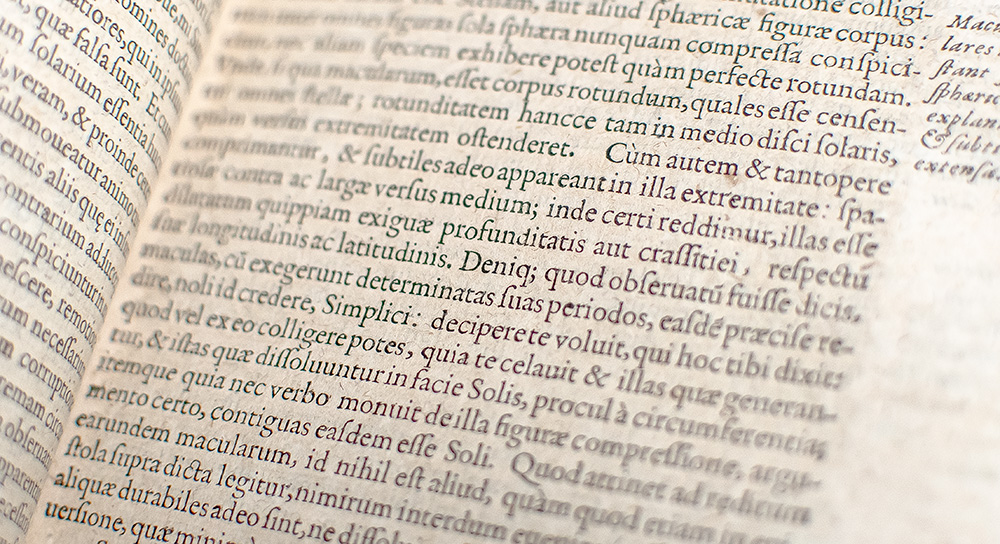 omines do
atiores, qui in ip
, quæ falſa ſunt. Et
um ſolarium eſſentia
, veram, & proinde
ſubmoueatur animo
entis aliis quę ei
contrarium adduc
conſpiciuntur in
neſcere, remotio
um neceſſario
m corruptio
remam circ
obſerua
apparent
eceſſari
, aut aliud ſphæricæ figuræ corpus:
figuras ſola ſphæra nunquam compreſſa conſpici-
aliam ſpeciem exhibere poteſt quàm perfecte rotundam.
Vnde ſi qui macularum, eſſet corpus rotundum, quales eſſe cenſen-
omnes ſtellæ; rotunditatem hancce tam in medio diſci ſolaris,
quàm verſus extremitatem oſtenderet. Cùm autem & tantopere
comprimantur, & ſubtiles adeo appareant in illa extremitate: ſpa-
contra ac largæ verſus medium; inde certi reddimur, illas eſſe
dilatatum quippiam exiguæ profunditatis aut craſſitiei, reſpectu
ſuæ longitudinis ac latitudinis. Deniq; quod obſeruatū fuiſſe dicis,
maculas, cū exegerunt determinatas ſuas periodos, eaſdē præciſe re-
dire, noli id credere, Simplici: decipere te voluit, qui hoc tibi dixit:
quod vel ex eo colligere potes, quia te celauit & illas quæ generan-
tur, & iſtas quæ diſſoluuntur in facie Solis, procul à circumferentia;
itemque quia nec verbo monuit de illa figuræ compreſſione, argu-
mento certo, contiguas eaſdem eſſe Soli. Quod attinet ad reditum
earundem macularum, id nihil eſt aliud, quàm quod etiam in
ſtola ſupra dicta legitur, nimirum interdum
aliquæ durabiles adeo ſint, ne diſſol
uerſione, quæ
Mac
lares
ſtant
ſphæric
explan
& ſubti
extenſa